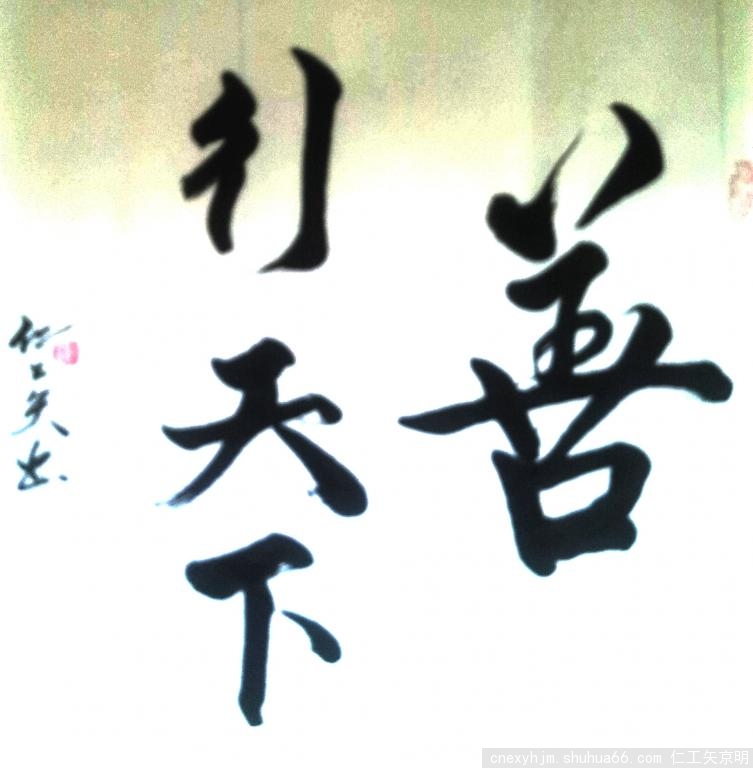 善
行天下
仁工矢书
cnexyhjm.shuhua66.com 仁工矢京明